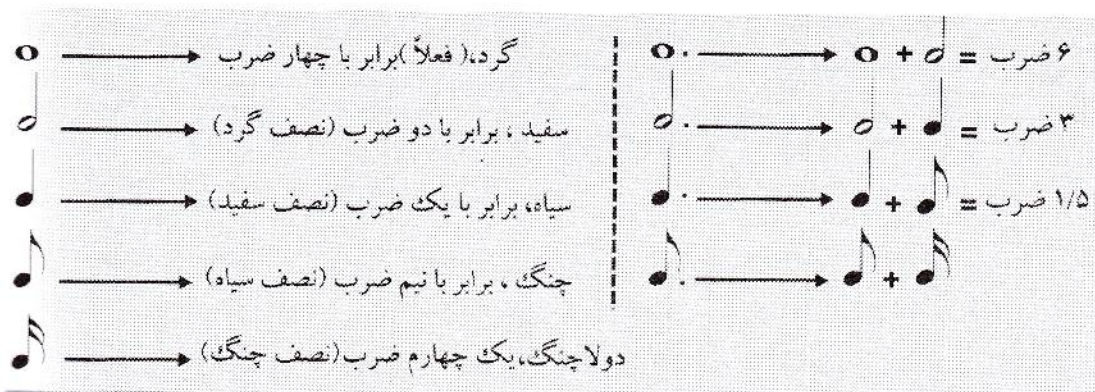 گرد،( فعلاً )برابر با چهار ضرب
سفید ، برابر با دو ضرب (نصف گرد)
سیاه، برابر با یک ضرب (نصف سفید)
چنگ ، برابر با نیم ضرب (نصف سیاه)
دولاچنگ،یک چهارم ضرب(نصف چنگ)
+ = ۶ ضرب
+ = ۳ ضرب
+ = ۱/۵ ضرب
+